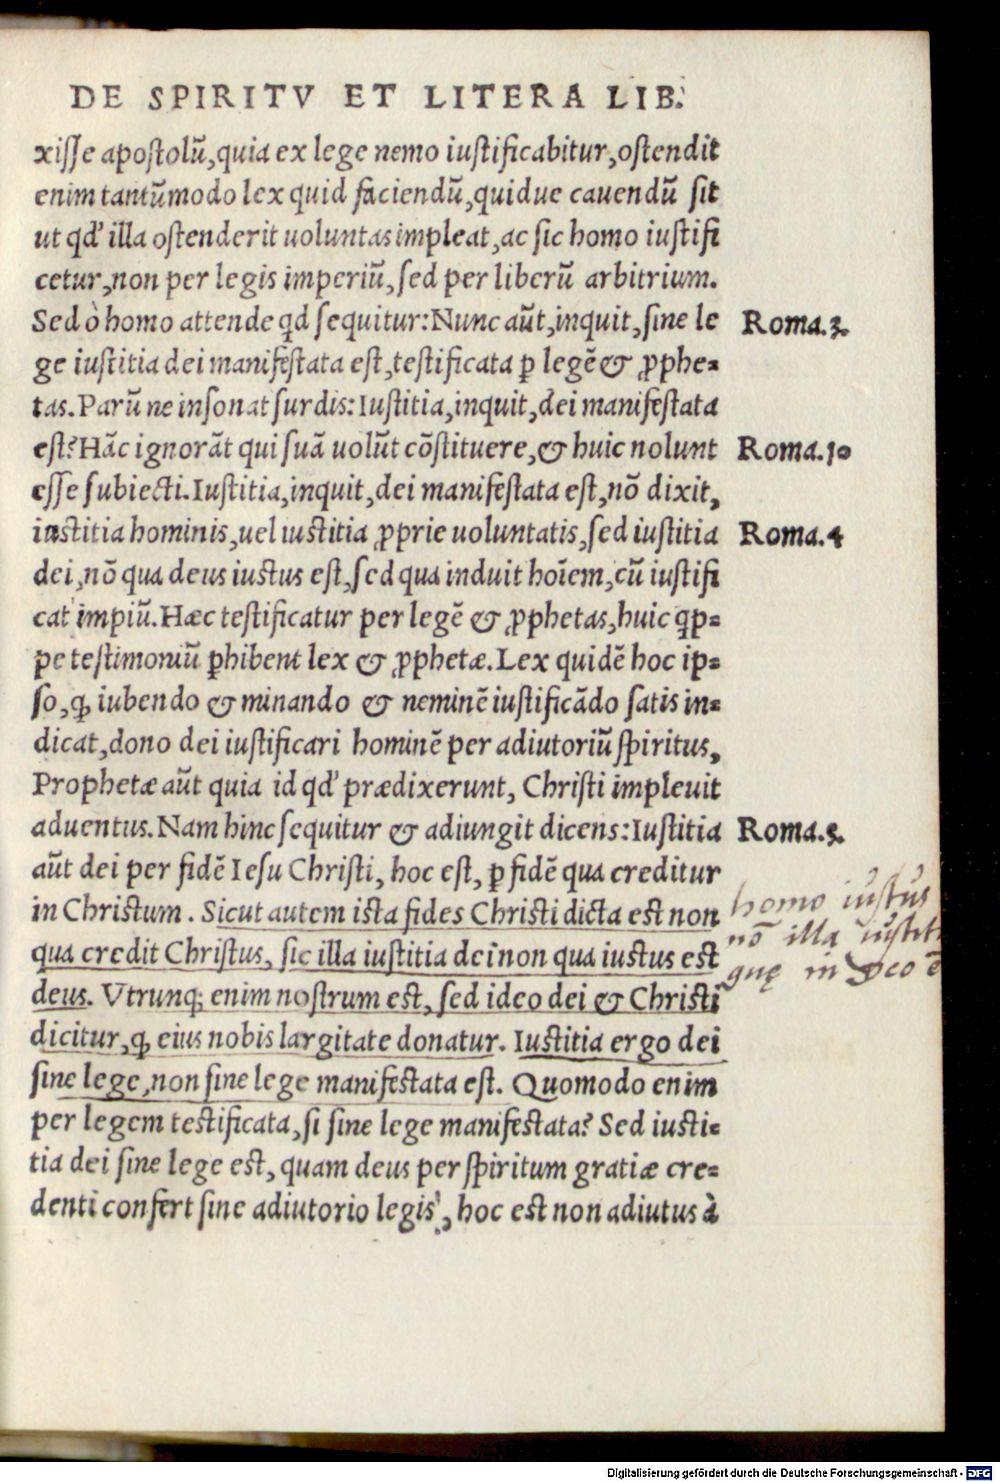 DE SPIRITV ET LITERA LIB.
xisse apostolũ, quia ex lege nemo iustificabitur, ostendit
enim tantũmodo lex quid faciendũ, quidue cauendũ sit
ut qd' illa ostenderit uoluntas impleat, ac sic homo iustifi
cetur, non per legis imperiũ, sed per liberũ arbitrium.
Sed ò homo attende qd sequitur: Nunc aũt, inquit, sine le
Roma.3.
ge iustitia dei manifestata est, testificata ꝑ legẽ & ꝓphe=
tas. Parũ ne insonat surdis: Iustitia, inquit, dei manifestata
est? Hãc ignorãt qui suã uolũt cõstituere, & huic nolunt
Roma.10
esse subiecti. Iustitia, inquit, dei manifestata est, nõ dixit,
iustitia hominis, uel iustitia ꝓprie uoluntatis, sed iustitia
Roma.4
dei, nõ qua deus iustus est, sed qua induit hoĩem, cũ iustifi
cat impiũ. Hæc testificatur per legẽ & ꝓphetas, huic q̃p=
pe testimoniũ ꝑhibent lex & ꝓphetæ. Lex quidẽ hoc ip=
so, ꝙ iubendo & minando & neminẽ iustificãdo satis in=
dicat, dono dei iustificari hominẽ per adiutoriũ spiritus,
Prophetæ aũt quia id qd' prædixerunt, Christi impleuit
aduentus. Nam hinc sequitur & adiungit dicens: Iustitia
Roma.3.
aũt dei per fidẽ Iesu Christi, hoc est, ꝑ fidẽ qua creditur
in Christum. Sicut autem ista fides Christi dicta est non
homo iustus
qua credit Christus, sic illa iustitia dei non qua iustus est
nõ illa iustiti
deus. Vtrunq; enim nostrum est, sed ideo dei & Christi
quę in Deo ẽ
dicitur, ꝙ eius nobis largitate donatur. Iustitia ergo dei
sine lege, non sine lege manifestata est. Quomodo enim
per legem testificata, si sine lege manifestata? Sed iusti=
tia dei sine lege est, quam deus per spiritum gratiæ cre=
denti confert sine adiutorio legis, hoc est non adiutus à
Digitalisierung gefördert durch die Deutsche Forschungsgemeinschaft - DFG